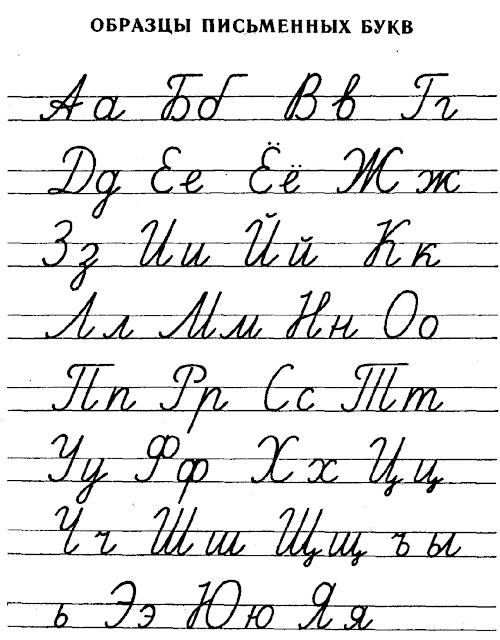 ОБРАЗЦЫ ПИСЬМЕННЫХ БУКВ
Аа Бб Вв Гг
Дд Ее Ёё Жж
Зз Ии Йй Кк
Лл Мм Нн Оо
Пп Рр Сс Тт
Уу Фф Хх Цц
Чч Шш Щщ ъ ы
ь Ээ Юю Яя